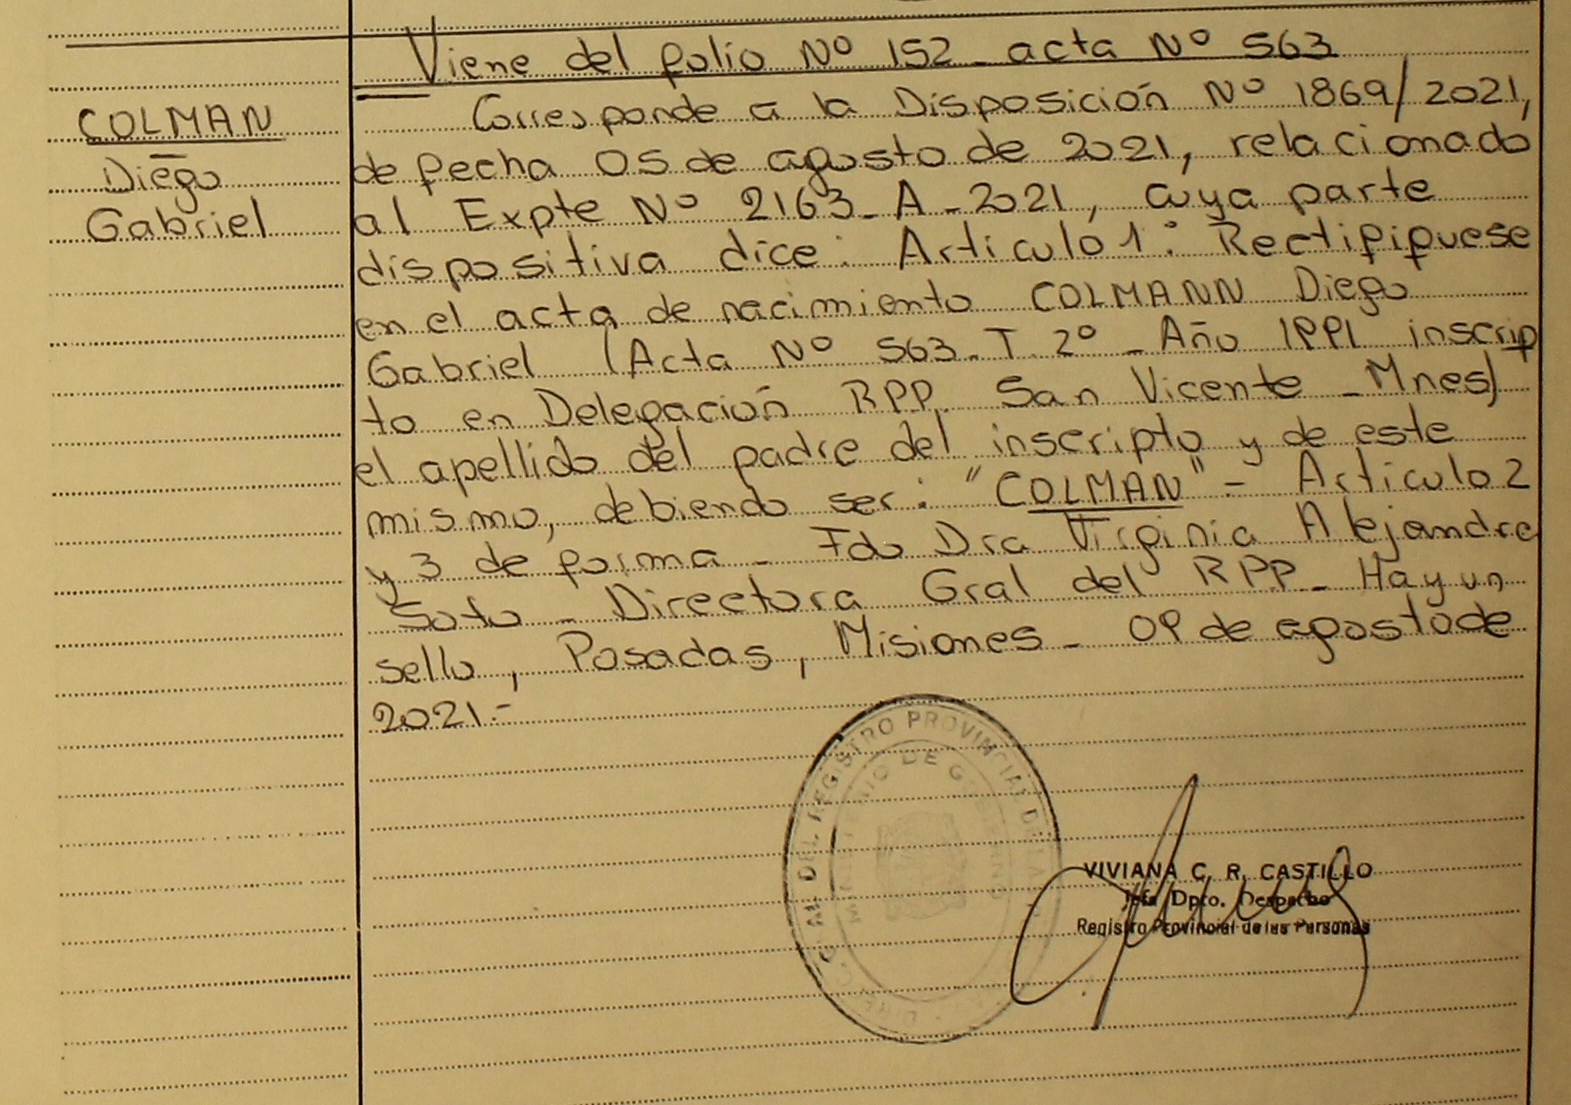 Viene del folio Nº 152 - acta Nº 563
COLMAN
Diego
Gabriel
Corresponde a la Disposición Nº 1869/2021,
de fecha 05 de agosto de 2021, relacionado
al Expte Nº 2163-A-2021, cuya parte
dispositiva dice: Articulo 1: Rectifiquese
en el acta de nacimiento COLMANN Diego
Gabriel (Acta Nº 563-T. 2º - Año 1991 inscrip
to en Delegación RPP. San Vicente - Mnes)
el apellido del padre del inscripto y de este
mismo, debiendo ser: "COLMAN" - Articulo 2
y 3 de forma - Fdo Dra Virginia Alejandra
Soto - Directora Gral del RPP - Hay un
sello, Posadas, Misiones - 09 de agosto de
2021.-
DIREC. G. M. DEL REGISTRO PROVINCIAL DE LAS
MINISTERIO DE GOBIERNO
VIVIANA C. R. CASTILLO
Jefa Dpto. Despacho
Registro Provincial de las Personas